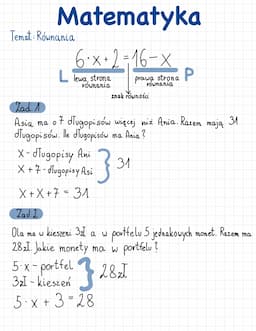 Matematyka
Temat: Równania
6·x+2=16-x
L lewa strona równania prawa strona równania P
znak równości
Zad 1
Asia ma o 7 długopisów więcej niż Ania. Razem mają 31
długopisów. Ile długopisów ma Ania?
x - długopisy Ani
x + 7 - długopisy Asi } 31
x+x+7 = 31
Zad 2
Ola ma w kieszeni 3zł a w portfelu 5 jednakowych monet. Razem ma
28zł. Jakie monety ma w portfelu?
5·x - portfel
3zł - kieszeń } 28zł
5·x + 3 = 28